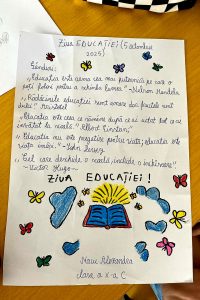 Ziua EDUCAȚIEI (5 octombrie
2025)
Gânduri:
,,Educația este arma cea mai puternică pe care o
poți folosi pentru a schimba lumea." ~Nelson Mandela
,,Rădăcinile educației sunt amare dar fructele sunt
dulci." Aristotel
,,Educația este ceea ce rămâne după ce ai uitat tot ce ai
învățat la școală." Albert Einstein
,,Educația nu este pregătire pentru viață; educația este
viața însăși." ~John Dewey
,,Cel care deschide o școală, închide o închisoare".
~Victor Hugo~
ZIUA EDUCAȚIEI!
Alexandra
clasa a X-a C